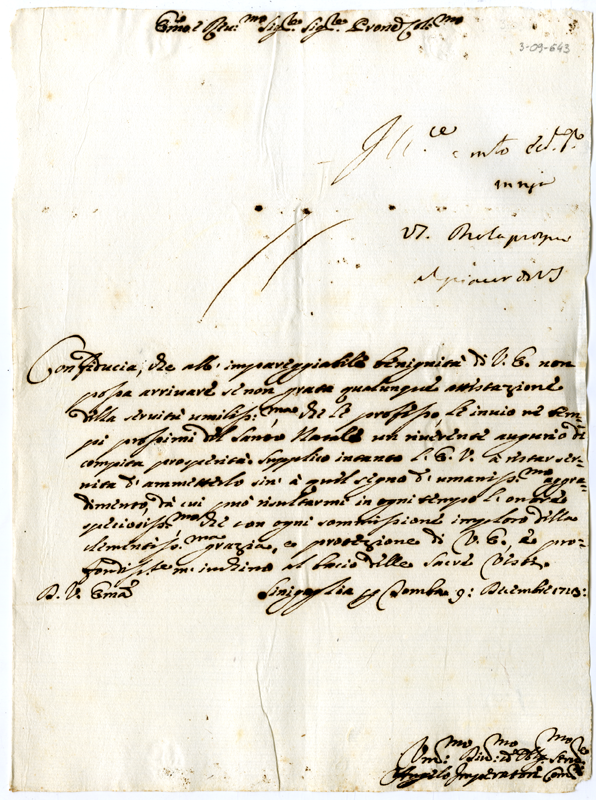 Em.o e Reu.mo Sig.re Sig.re Prone Col.mo
3-09-643
Ill.ce
Con fiducia, che all' impareggiabile benignità di V. E. non
possa arrivare se non grata qualunque attestazione
della servitù umiliss.ma che le professo le invio ne tem-
pi prossimi del Santo Natale un riverente augurio di
compita prosperità. Supplico intanto l' E. V. à restar ser-
vita d' ammetterlo sin' à quel segno d' umaniss.mo aggra-
dimento, da cui può risultarmi in ogni tempo l' onore
speciosiss.mo che con ogni sommissione imploro della
clementiss.ma grazia, e protezione di V. E. à pro-
fondiss.te m' inchino al bacio delle Sacre Veste.
D. V. Em.a
Sinigaglia 9: Decembre 1713:
Um.mo Div.mo Obl.mo Serv.e
Angelo Imperatori